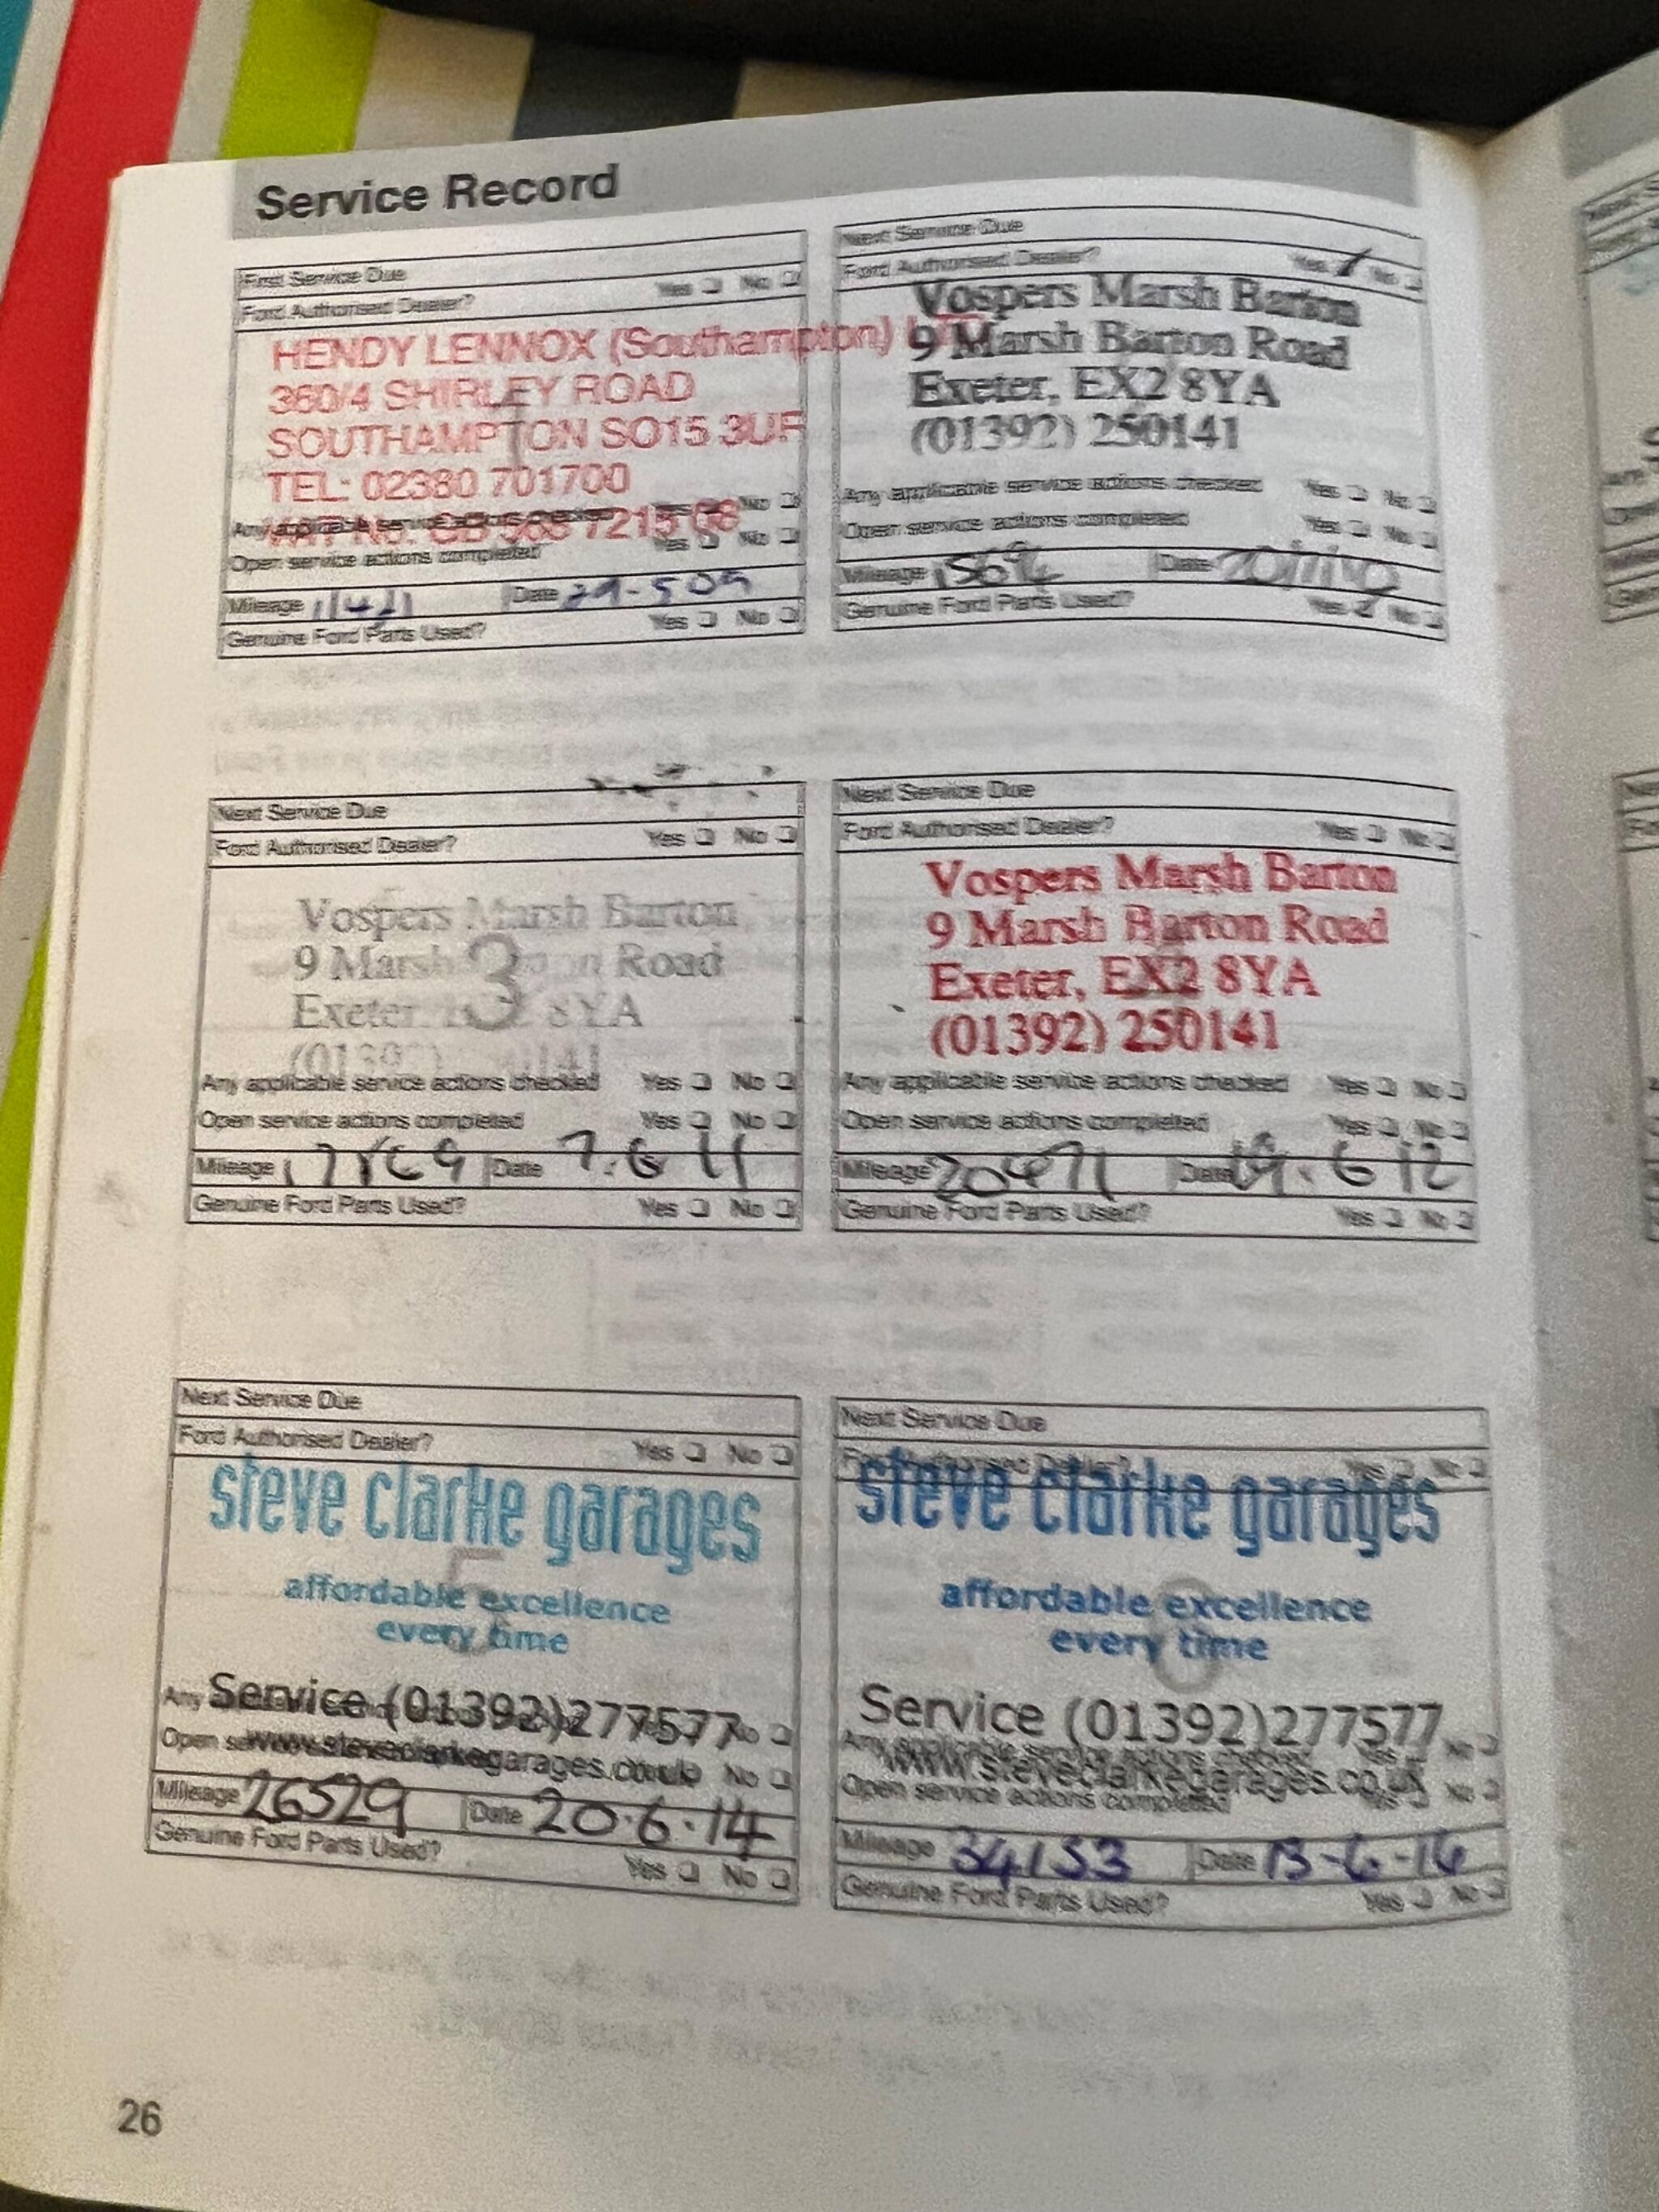 Service Record
First Service Due
Ford Authorised Dealer? Yes No
HENDY LENNOX (Southampton) LTD
360/4 SHIRLEY ROAD
SOUTHAMPTON SO15 3UF
TEL: 02380 701700
VAT No. GB 568 7215 68
Any applicable service actions checked Yes No
Open service actions completed Yes No
Mileage 11421 Date 29-509
Genuine Ford Parts Used? Yes No
Next Service Due
Ford Authorised Dealer? Yes No
Vospers Marsh Barton
9 Marsh Barton Road
Exeter, EX2 8YA
(01392) 250141
Any applicable service actions checked Yes No
Open service actions completed Yes No
Mileage Date
Genuine Ford Parts Used? Yes No
Next Service Due
Ford Authorised Dealer? Yes No
Vospers Marsh Barton
9 Marsh Road
3
Exeter 8YA
Any applicable service actions checked Yes No
Open service actions completed Yes No
Mileage Date 7.6 11
Genuine Ford Parts Used? Yes No
Next Service Due
Ford Authorised Dealer? Yes No
Vospers Marsh Barton
9 Marsh Barton Road
Exeter, EX2 8YA
(01392) 250141
Any applicable service actions checked Yes No
Open service actions completed Yes No
Mileage 20471 Date 19.6 12
Genuine Ford Parts Used? Yes No
Next Service Due
Ford Authorised Dealer? Yes No
steve clarke garages
5
affordable excellence
every time
Service (01392)277577
Any No
Open www.steveclarkegarages.co.uk No
Mileage 26529 Date 20.6.14
Genuine Ford Parts Used? Yes No
Next Service Due
Ford Authorised Dealer? Yes No
steve clarke garages
affordable excellence
6
every time
Service (01392)277577
Any applicable service actions checked Yes No
www.steveclarkegarages.co.uk
Open service actions completed Yes No
Mileage 34153 Date 13-6-16
Genuine Ford Parts Used? Yes No
26